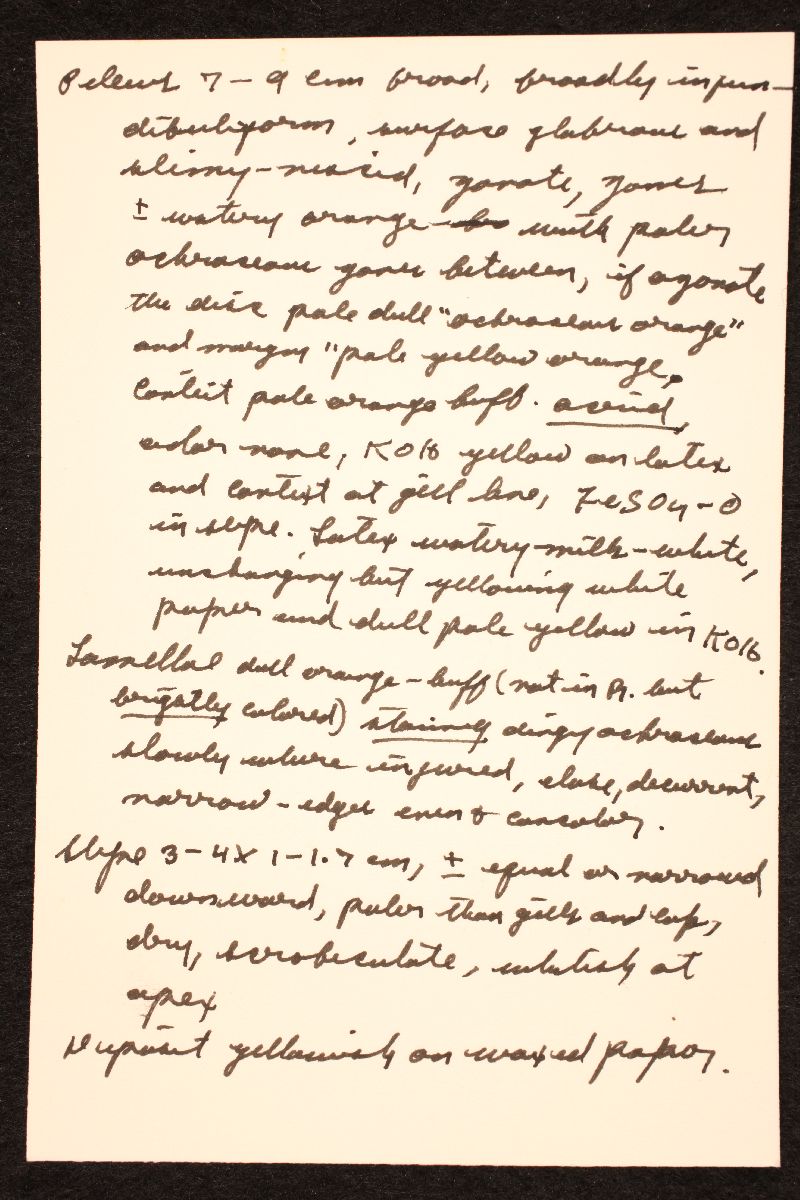 Pileus 7 – 9 cm broad, broadly infun–
dibuliform, surface glabrous and
slimy-viscid, zonate, zones
± watery orange with paler
ochraceous zones between, if azonate
the disc pale dull "ochraceous orange"
and margin "pale yellow orange,
context pale orange buff. acrid,
odor none, KOH yellow on latex
and context at gill line, FeSO4 – 0
in stipe. Latex watery-milk-white,
unchanging but yellowing white
paper and dull pale yellow in KOH.
Lamellae dull orange-buff (not in R. but
brightly colored) staining dingy ochraceous
slowly where injured, close, decurrent,
narrow – edges even & concolor.
Stipe 3–4 X 1–1.7 cm, ± equal or narrowed
downward, paler than gills and cap,
dry, scrobiculate, whitish at
apex
Deposit yellowish on waxed paper.